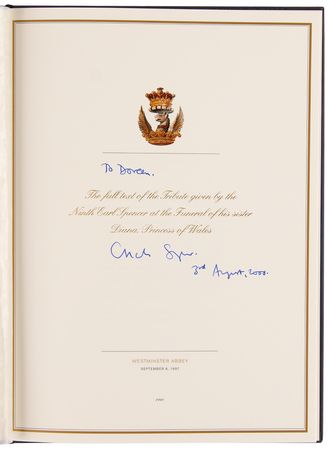 To Doreen.
The full text of the Tribute given by the
Ninth Earl Spencer at the Funeral of his sister
Diana, Princess of Wales
3rd August, 2000.
WESTMINSTER ABBEY
SEPTEMBER 6, 1997